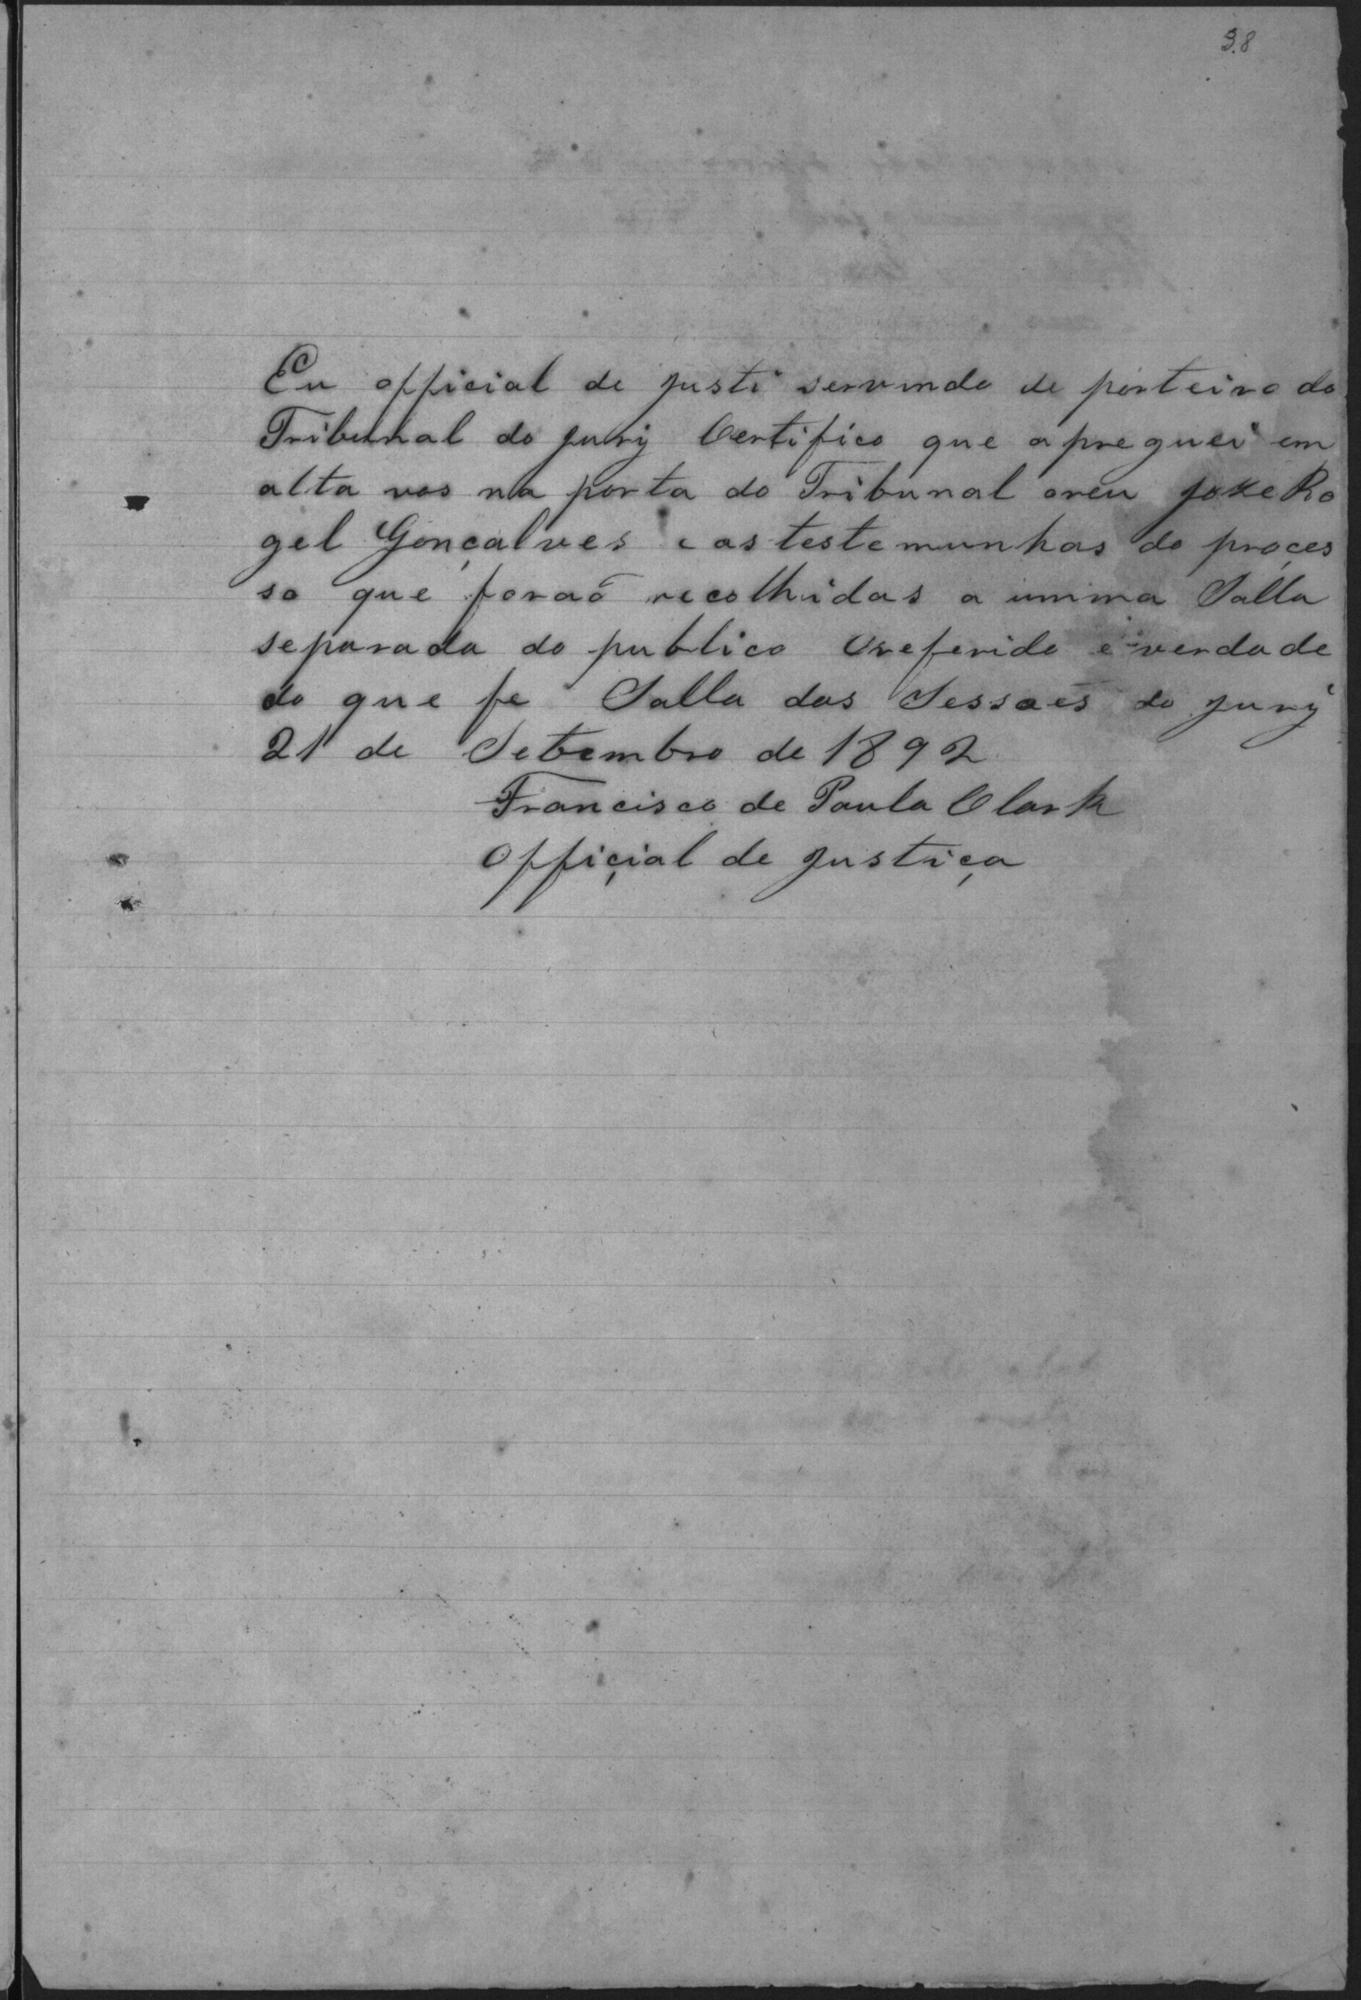 38
Eu official de justi servindo de porteiro do
Tribunal do jury Certifico que apreguei em
alta vos na porta do Tribunal oreu José Ro
gel Gonçalves e as testemunhas do proçes
so que foraõ recolhidas a umma Salla
separada do publico Oreferido é verdade
do que fe Salla das Sessões do jury
21 de Setembro de 1892
Francisco de Paula Clark
Offiçial de justiça